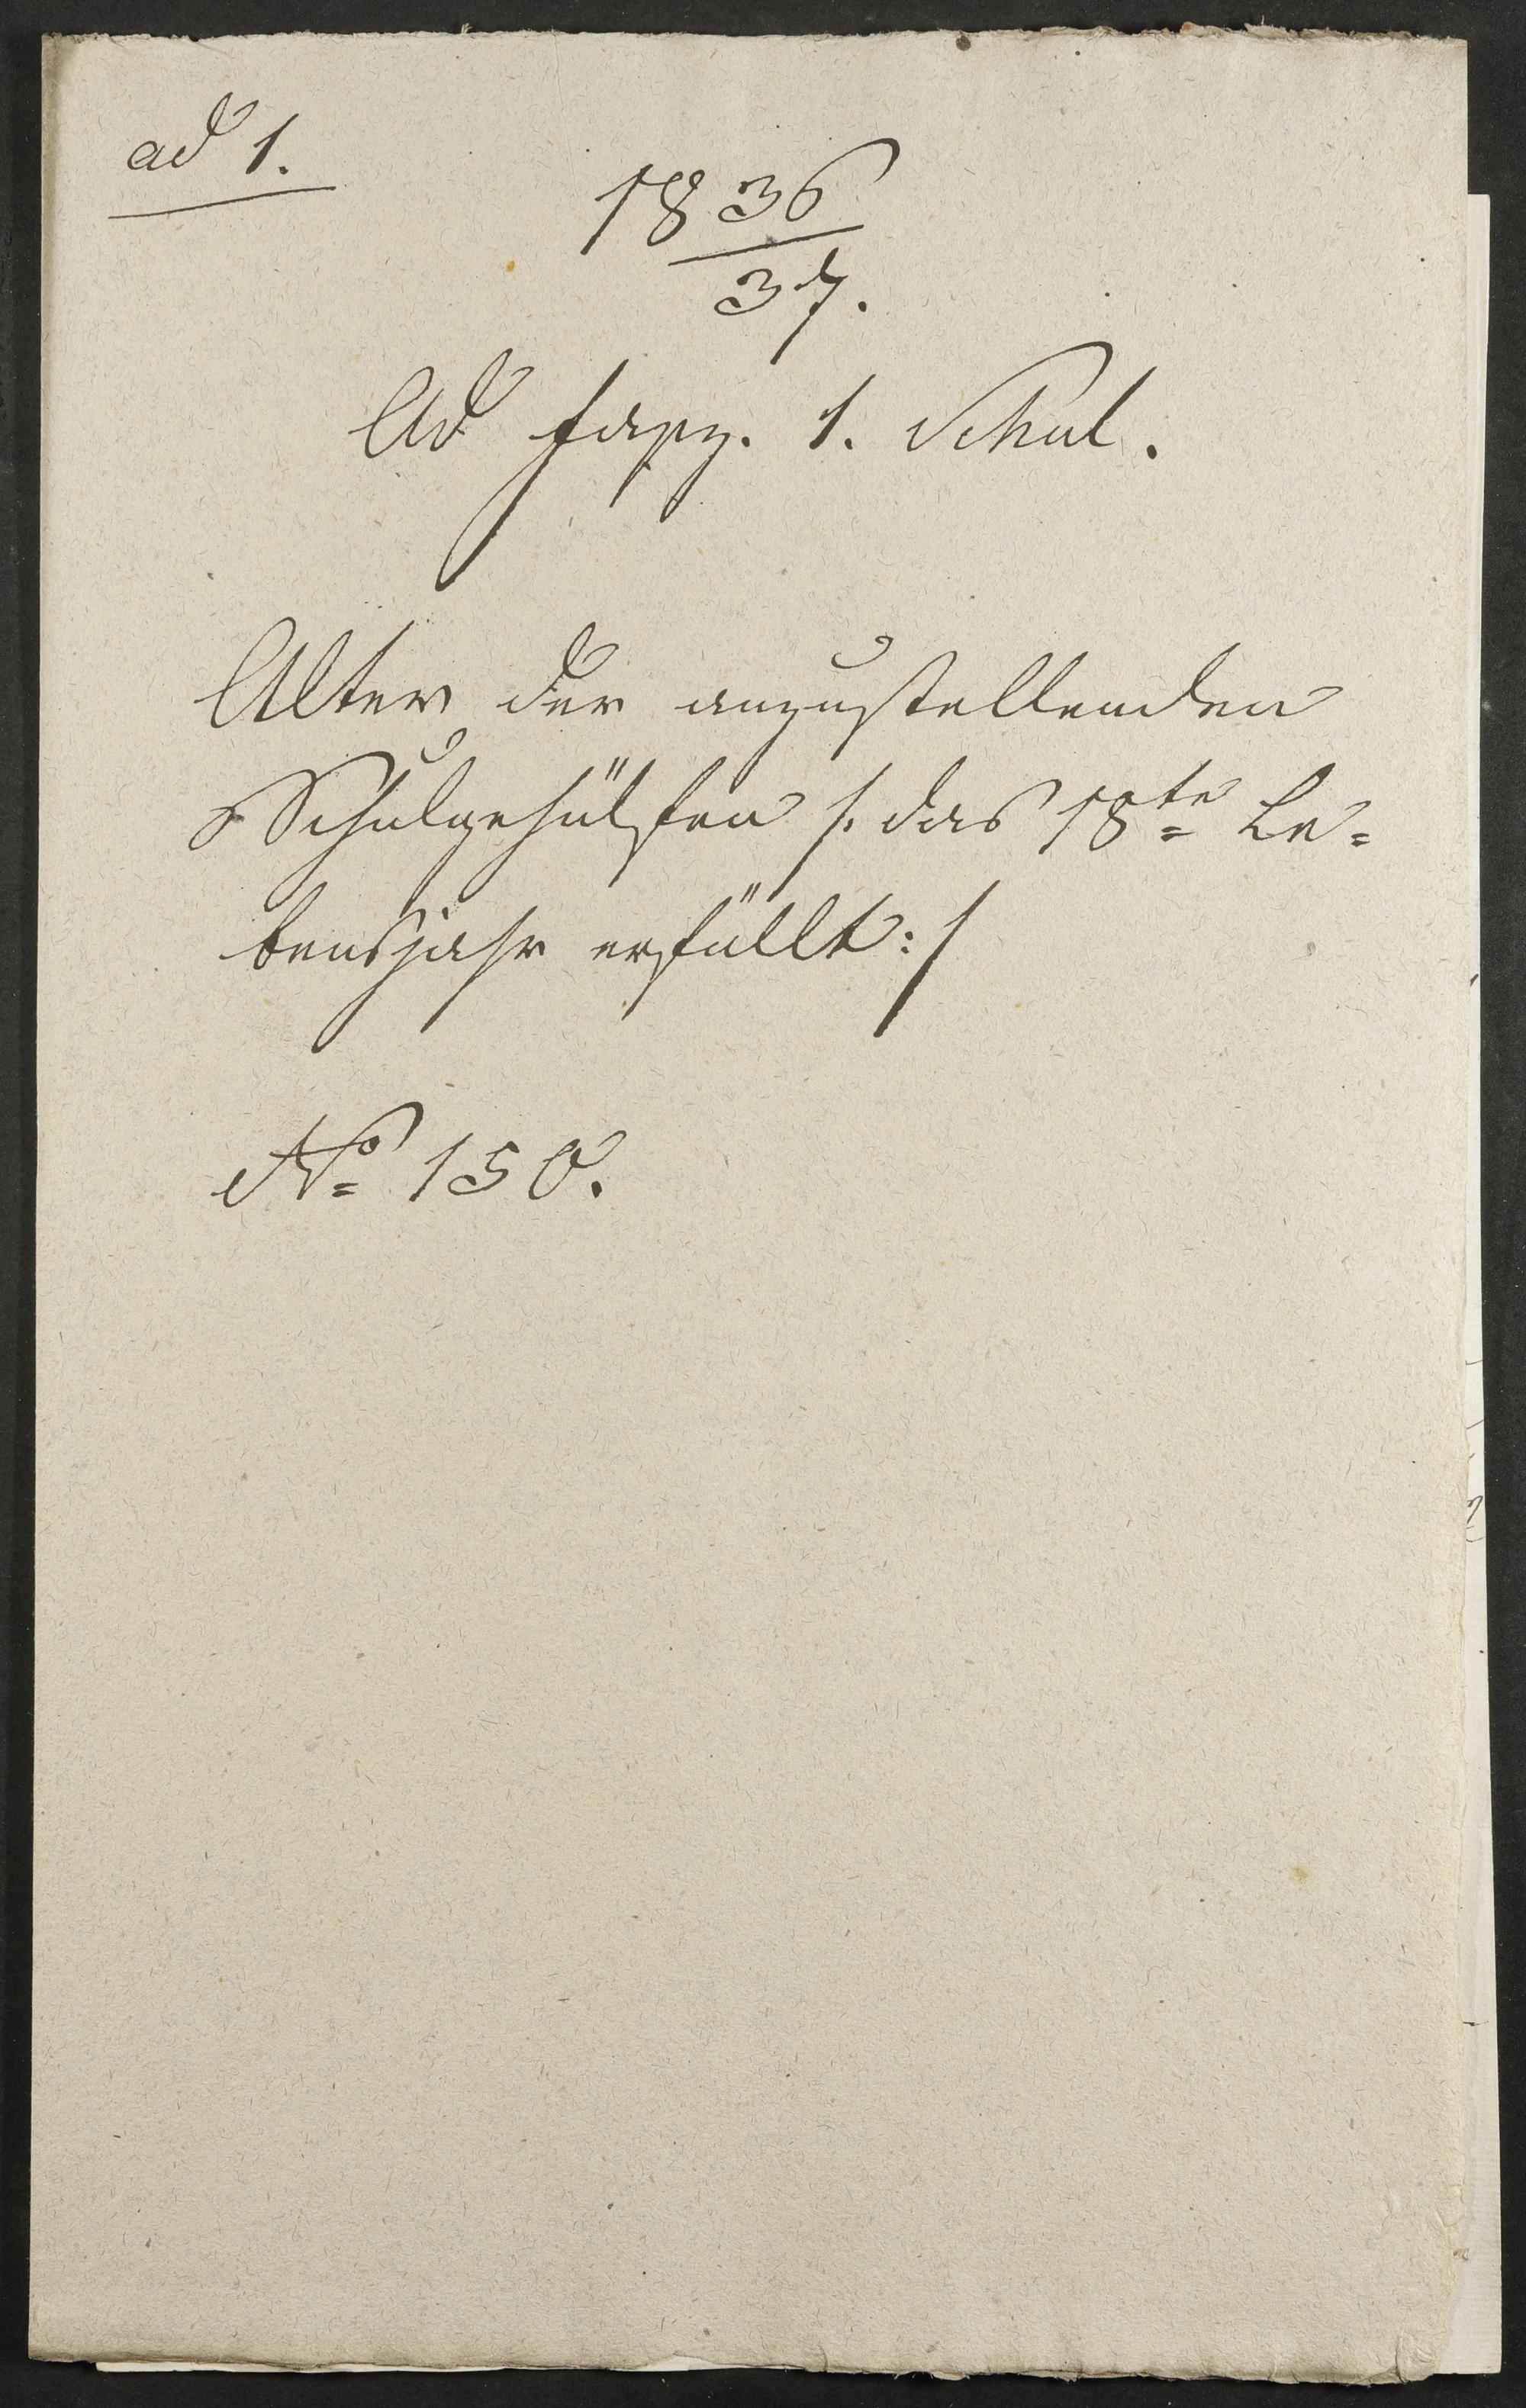 ad 1.
1836
37.
Ad fasz. 1. Schul.
Alter der anzustellenden
Schulgehülfen /: das 18te Le=
bensjahr erfüllt :/
No 150.